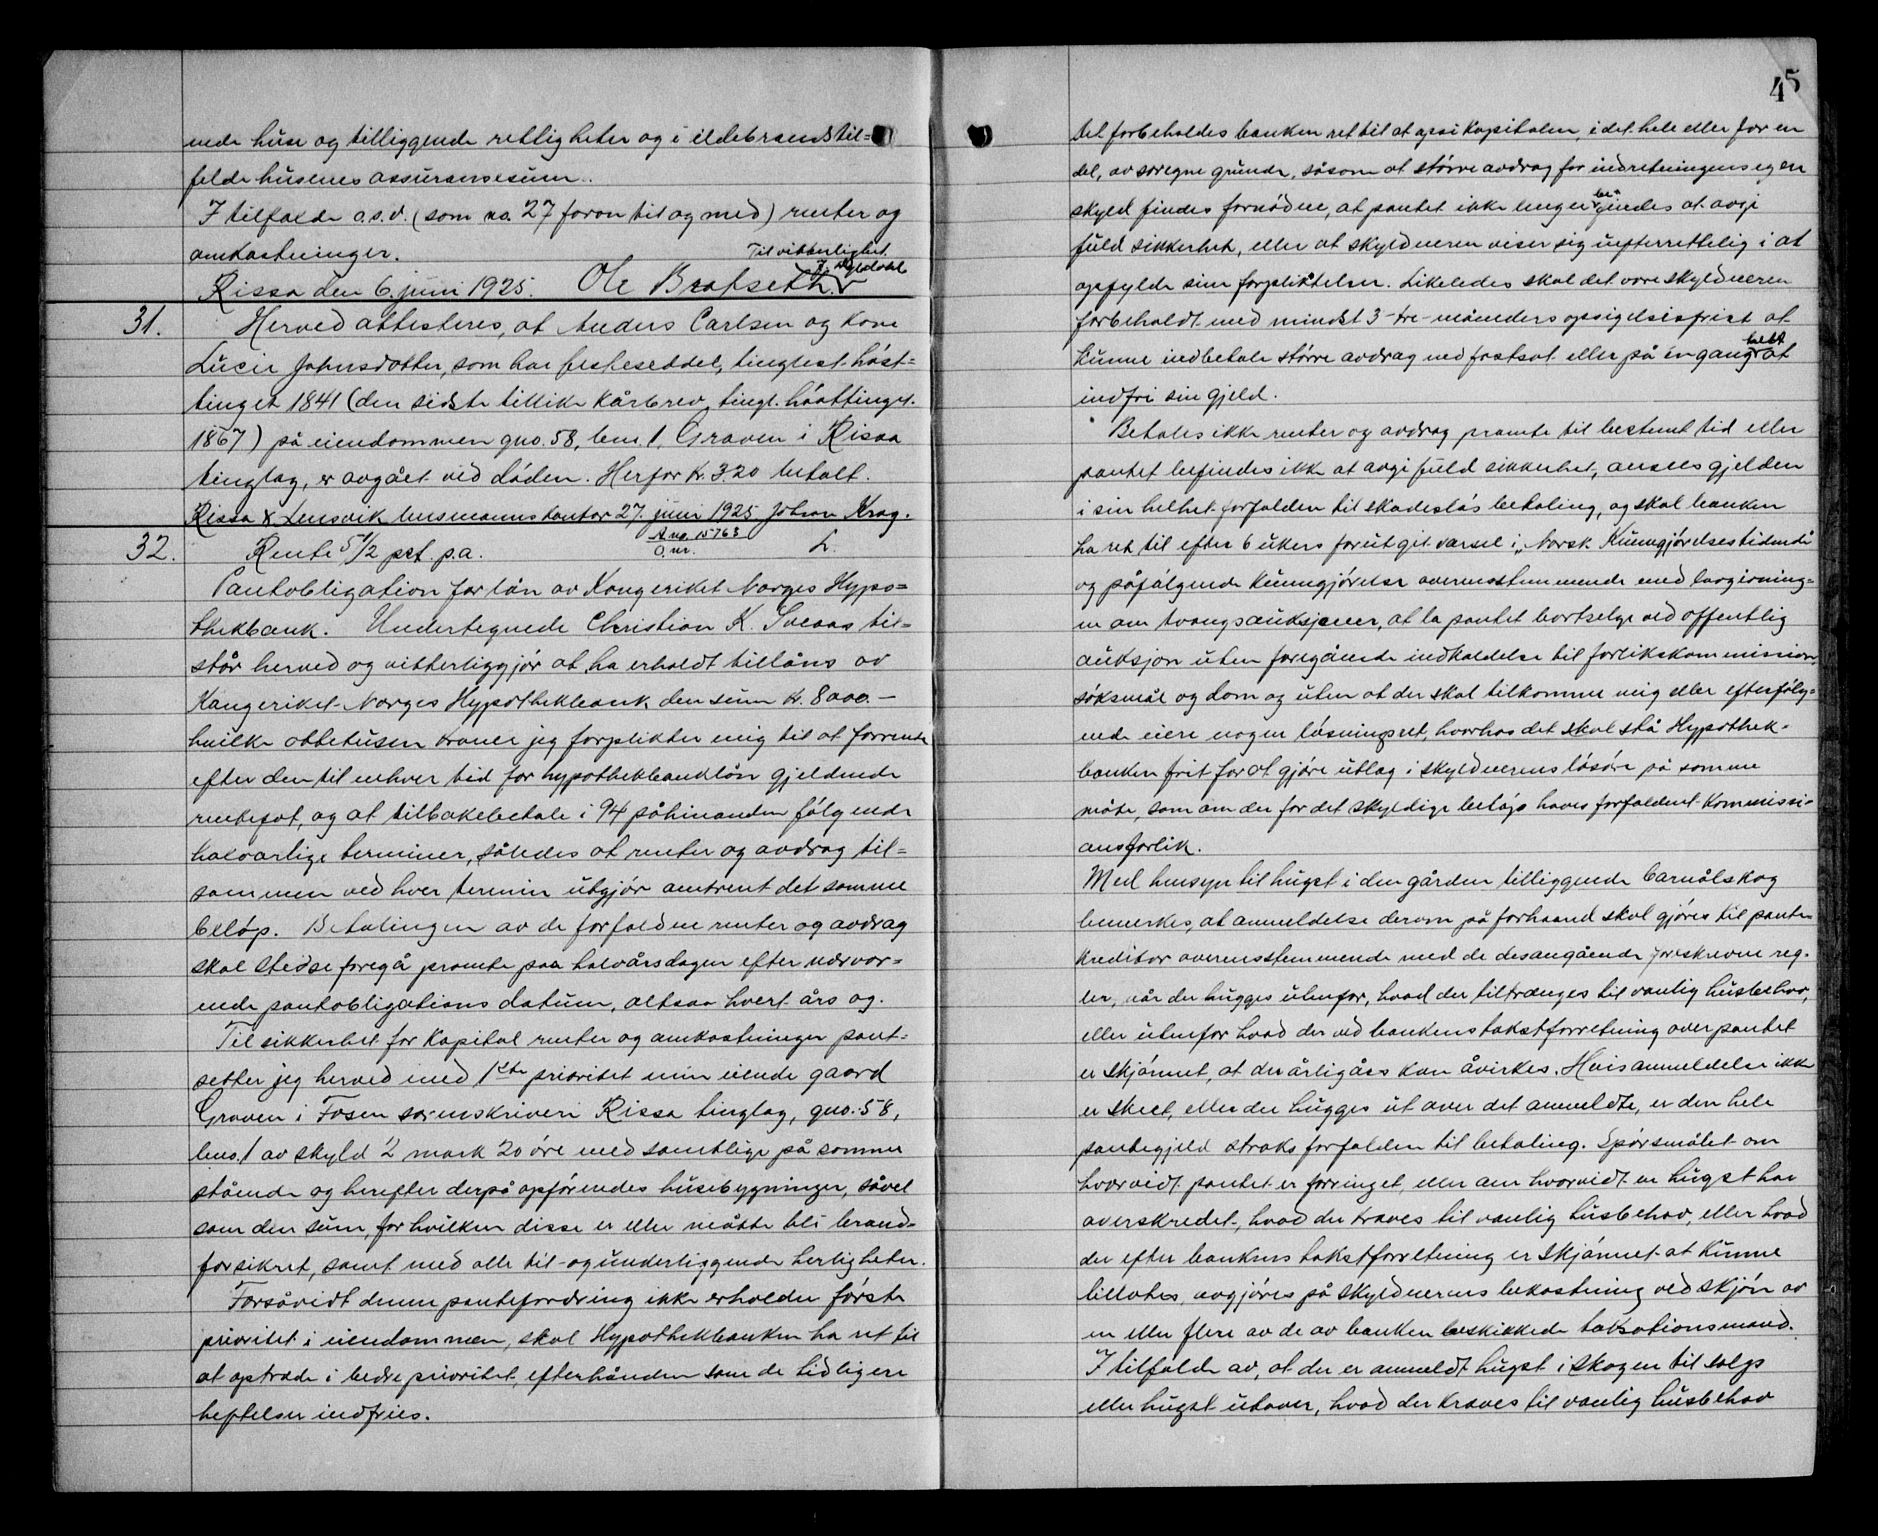 ende huse og tilliggende rettigheter og i ildebrandstil=
felde husenes assuransesum.
I tilfelde o.s.v. (som no. 27 foran til og med) renter og
omkostninger.
Til vitterlighet.
Rissa den 6. juni 1925. Ole Brafseth.
31. Herved attesteres, at Anders Carlsen og kone
Lucie Johnsdotter, som har festeseddel, tinglest høst=
tinget 1841 (den sidste tillike kårbrev, tingl. høsttinget
1867) på eiendommen gno. 58, bno. 1, Graven i Rissa
tinglag, er avgået ved døden. Herfor kr. 3.20 betalt.
Rissa & Lensvik lensmannskontor 27. juni 1925 Johan Krag.
32. Rente 5 1/2 pct. p.a. A no. 15763
O. nr. L.
Pantobligation for lån av Kongeriket Norges Hypo=
thekbank. Undertegnede Christian K. Sveaas til=
står herved og vitterliggjør at ha erholdt tillåns av
Kongeriket Norges Hypothekbank den sum kr. 8000.-
hvilke ottetusen kroner jeg forplikter mig til at forrente
efter den til enhver tid for hypothekbanklån gjeldende
rentefot, og at tilbakebetale i 94 påhinanden følgende
halvårlige terminer, således at renter og avdrag til=
sammen ved hver termin utgjør omtrent det samme
beløp. Betalingen av de forfaldne renter og avdrag
skal stedse foregå promte paa halvårsdagen efter nærvær=
ende pantobligations datum, altsaa hvert års og.
Til sikkerhet for kapital renter og omkostninger pant=
setter jeg herved med 1ste prioritet min eiende gaard
Graven i Fosen sorenskriveri Rissa tinglag, gno. 58,
bno. 1 av skyld 2 mark 20 øre med samtlige på samme
stående og herefter derpå opførendes husebygninger, såvel
som den sum, for hvilken disse er eller måtte bli brand=
forsikret, samt med alle til- og underliggende herligheter.
Forsåvidt denne pantefordring ikke erholder første
prioritet i eiendommen, skal Hypothekbanken ha ret til
at optræde i bedre prioritet, efterhånden som de tidligere
heftelser indfries.
45
Det forbeholdes banken ret til at opsi kapitalen, i det hele eller for en
del, av særegne grunde, såsom at større avdrag for indretningens egen
skyld findes fornødne, at pantet ikke lenger befindes at avgi
fuld sikkerhet, eller at skyldneren viser sig uefterrettelig i at
opfylde sine forpliktelser. Likeledes skal det være skyldneren
forbeholdt med mindst 3-tre-måneders opsigelsesfrist at
kunne indbetale større avdrag end fastsat eller på én gang helt at
indfri sin gjeld.
Betales ikke renter og avdrag promte til bestemt tid eller
pantet befindes ikke at avgi fuld sikkerhet, ansees gjelden
i sin helhet forfalden til skadesløs betaling, og skal banken
ha ret til efter 6 ukers forutgit varsel i „Norsk Kunngjørelsestidende"
og påfølgende kunngjørelse overensstemmende med lovgivning=
en om tvangsauksjoner, at la pantet bortselge ved offentlig
auksjon uten foregående indkaldelse til forlikskommission
søksmål og dom og uten at der skal tilkomme mig eller efterfølg=
ende eiere nogen løsningsret, hvorhos det skal stå Hypothek-
banken frit for at gjøre utlæg i skyldnerens løsøre på samme
måte, som om der for det skyldige beløp haves forfaldent kommissi-
onsforlik.
Med hensyn til hugst i den gården tilliggende barnålskog
bemerkes, at anmeldelse derom på forhaand skal gjøres til pante-
kreditor overensstemmende med de desangående foreskrevne reg-
ler, når der hugges utenfor, hvad der tiltrænges til vanlig husbehov,
eller utenfor hvad der ved bankens takstforretning over pantet
er skjønnet, at der årligåes kan åvirkes. Hvis anmeldelse ikke
er skeet, eller der hugges ut over det anmeldte, er den hele
pantegjeld straks forfalden til betaling. Spørsmålet om
hvorvidt pantet er forringet, eller om hvorvidt en hugst har
overskredet, hvad der kræves til vanlig husbehov, eller hvad
der efter bankens takstforretning er skjønnet at kunne
tillates, avgjøres på skyldnerens bekostning ved skjøn av
en eller flere av de av banken beskikkede taksationsmænd.
I tilfelde av, at der er anmeldt hugst i skogen til salgs
eller hugst utover, hvad der kræves til vanlig husbehov